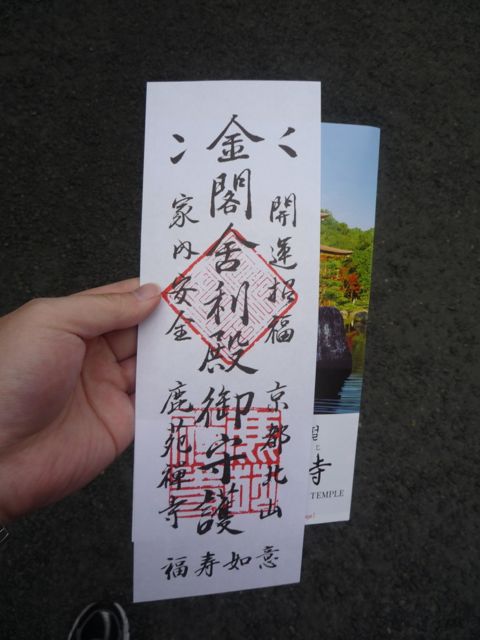 開運招福
京都北山
金閣舎利殿御守護
家内安全
鹿苑禅寺
福寿如意
寺
TEMPLE